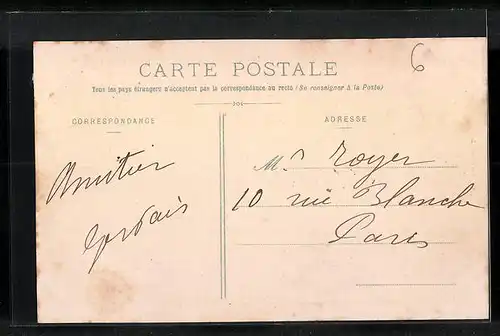 6
CARTE POSTALE
Tous les pays étrangers n'acceptent pas la correspondance au recto (Se renseigner à la Poste)
CORRESPONDANCE
ADRESSE
Amitier
Gervais
Mr Royer
10 rue Blanche
Paris